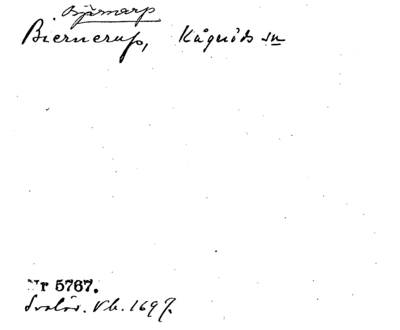 Bjärnarp
Biernerup, Kågeröds sn
Nr 5767.
Svalöv. Vb. 1697.